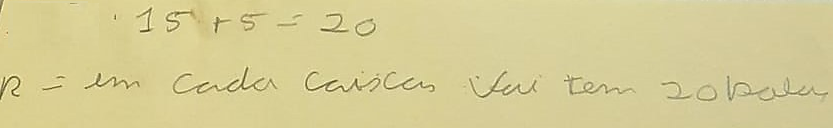 15 + 5 = 20
R = em cada caiscas vai tem 20 balas